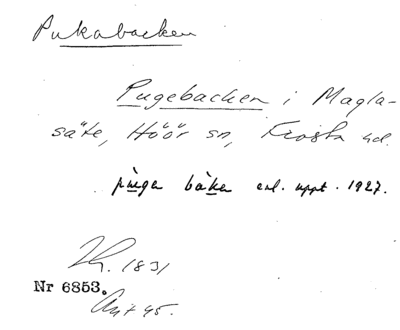 Pukabacken
Pugebacken i Magla-
säte, Höör sn, Frosta hd.
enl. uppt. 1927.
1831
Nr 6853.